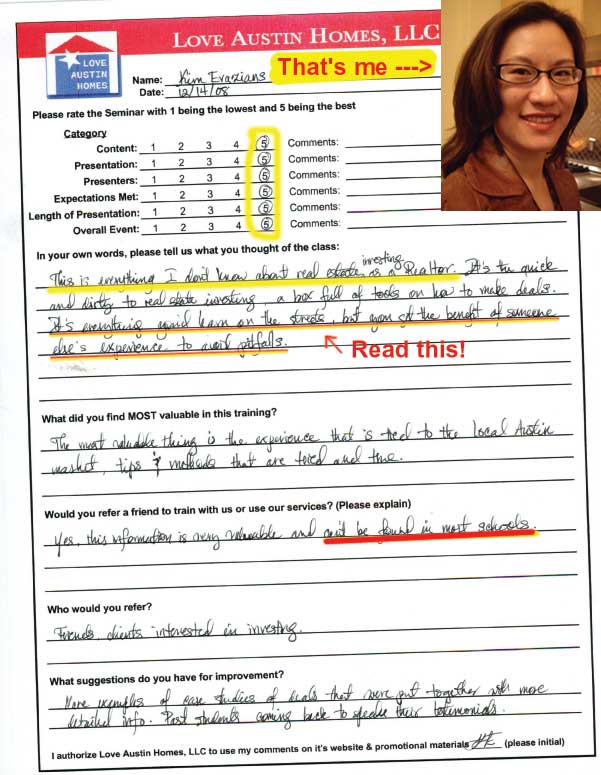 LOVE AUSTIN HOMES, LLC
LOVE
AUSTIN
HOMES
Name: Kim Evazians
That's me --->
Date: 12/14/08
Please rate the Seminar with 1 being the lowest and 5 being the best
Category
Content: 1 2 3 4 5 Comments:
Presentation: 1 2 3 4 5 Comments:
Presenters: 1 2 3 4 5 Comments:
Expectations Met: 1 2 3 4 5 Comments:
Length of Presentation: 1 2 3 4 5 Comments:
Overall Event: 1 2 3 4 5 Comments:
In your own words, please tell us what you thought of the class:
This is everything I don't know about real estate investing as a Realtor. It's the quick
and dirty to real estate investing, a box full of tools on how to make deals.
It's everything you'd learn on the streets, but you get the benefit of someone
else's experience to avoid pitfalls.
Read this!
What did you find MOST valuable in this training?
The most valuable thing is the experience that is tied to the local Austin
market, tips & methods that are tried and true.
Would you refer a friend to train with us or use our services? (Please explain)
Yes, this information is very valuable and can't be found in most schools.
Who would you refer?
Friends, clients interested in investing.
What suggestions do you have for improvement?
More examples of case studies of deals that were put together with more
detailed info. Past students coming back to speak their testimonials.
I authorize Love Austin Homes, LLC to use my comments on it's website & promotional materials (please initial)